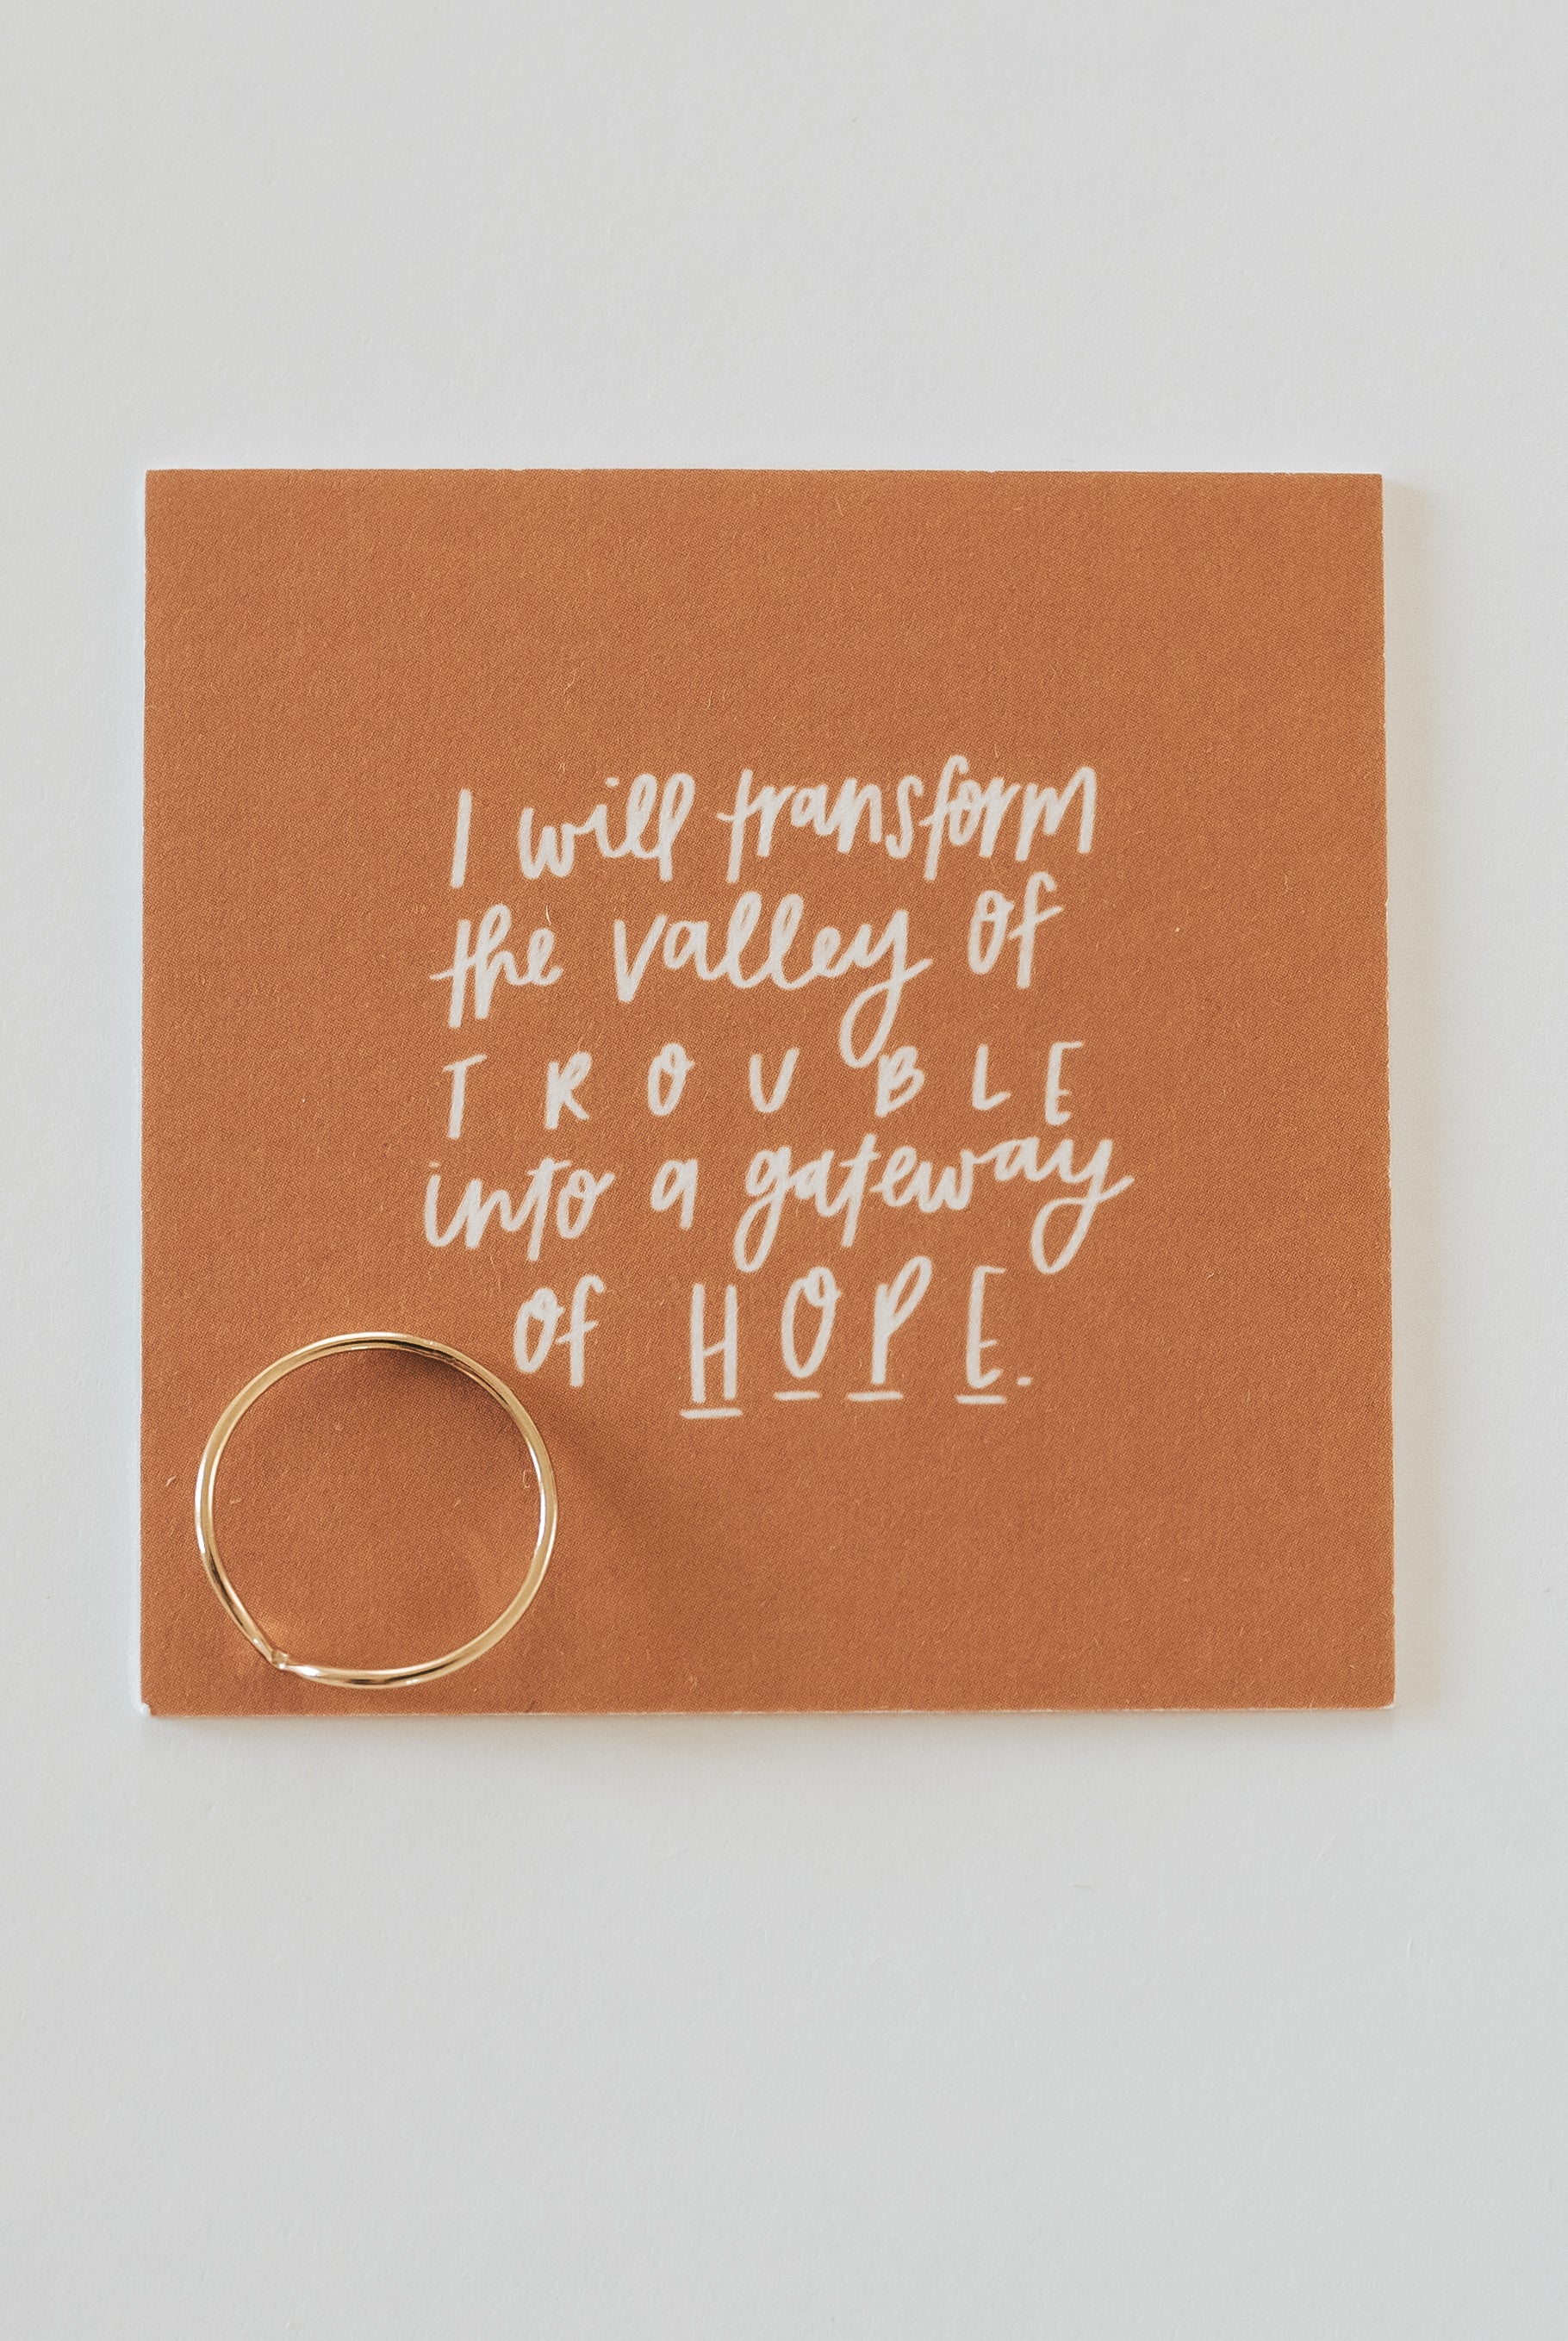 I will transform
the valley of
TROUBLE
into a gateway
of HOPE.